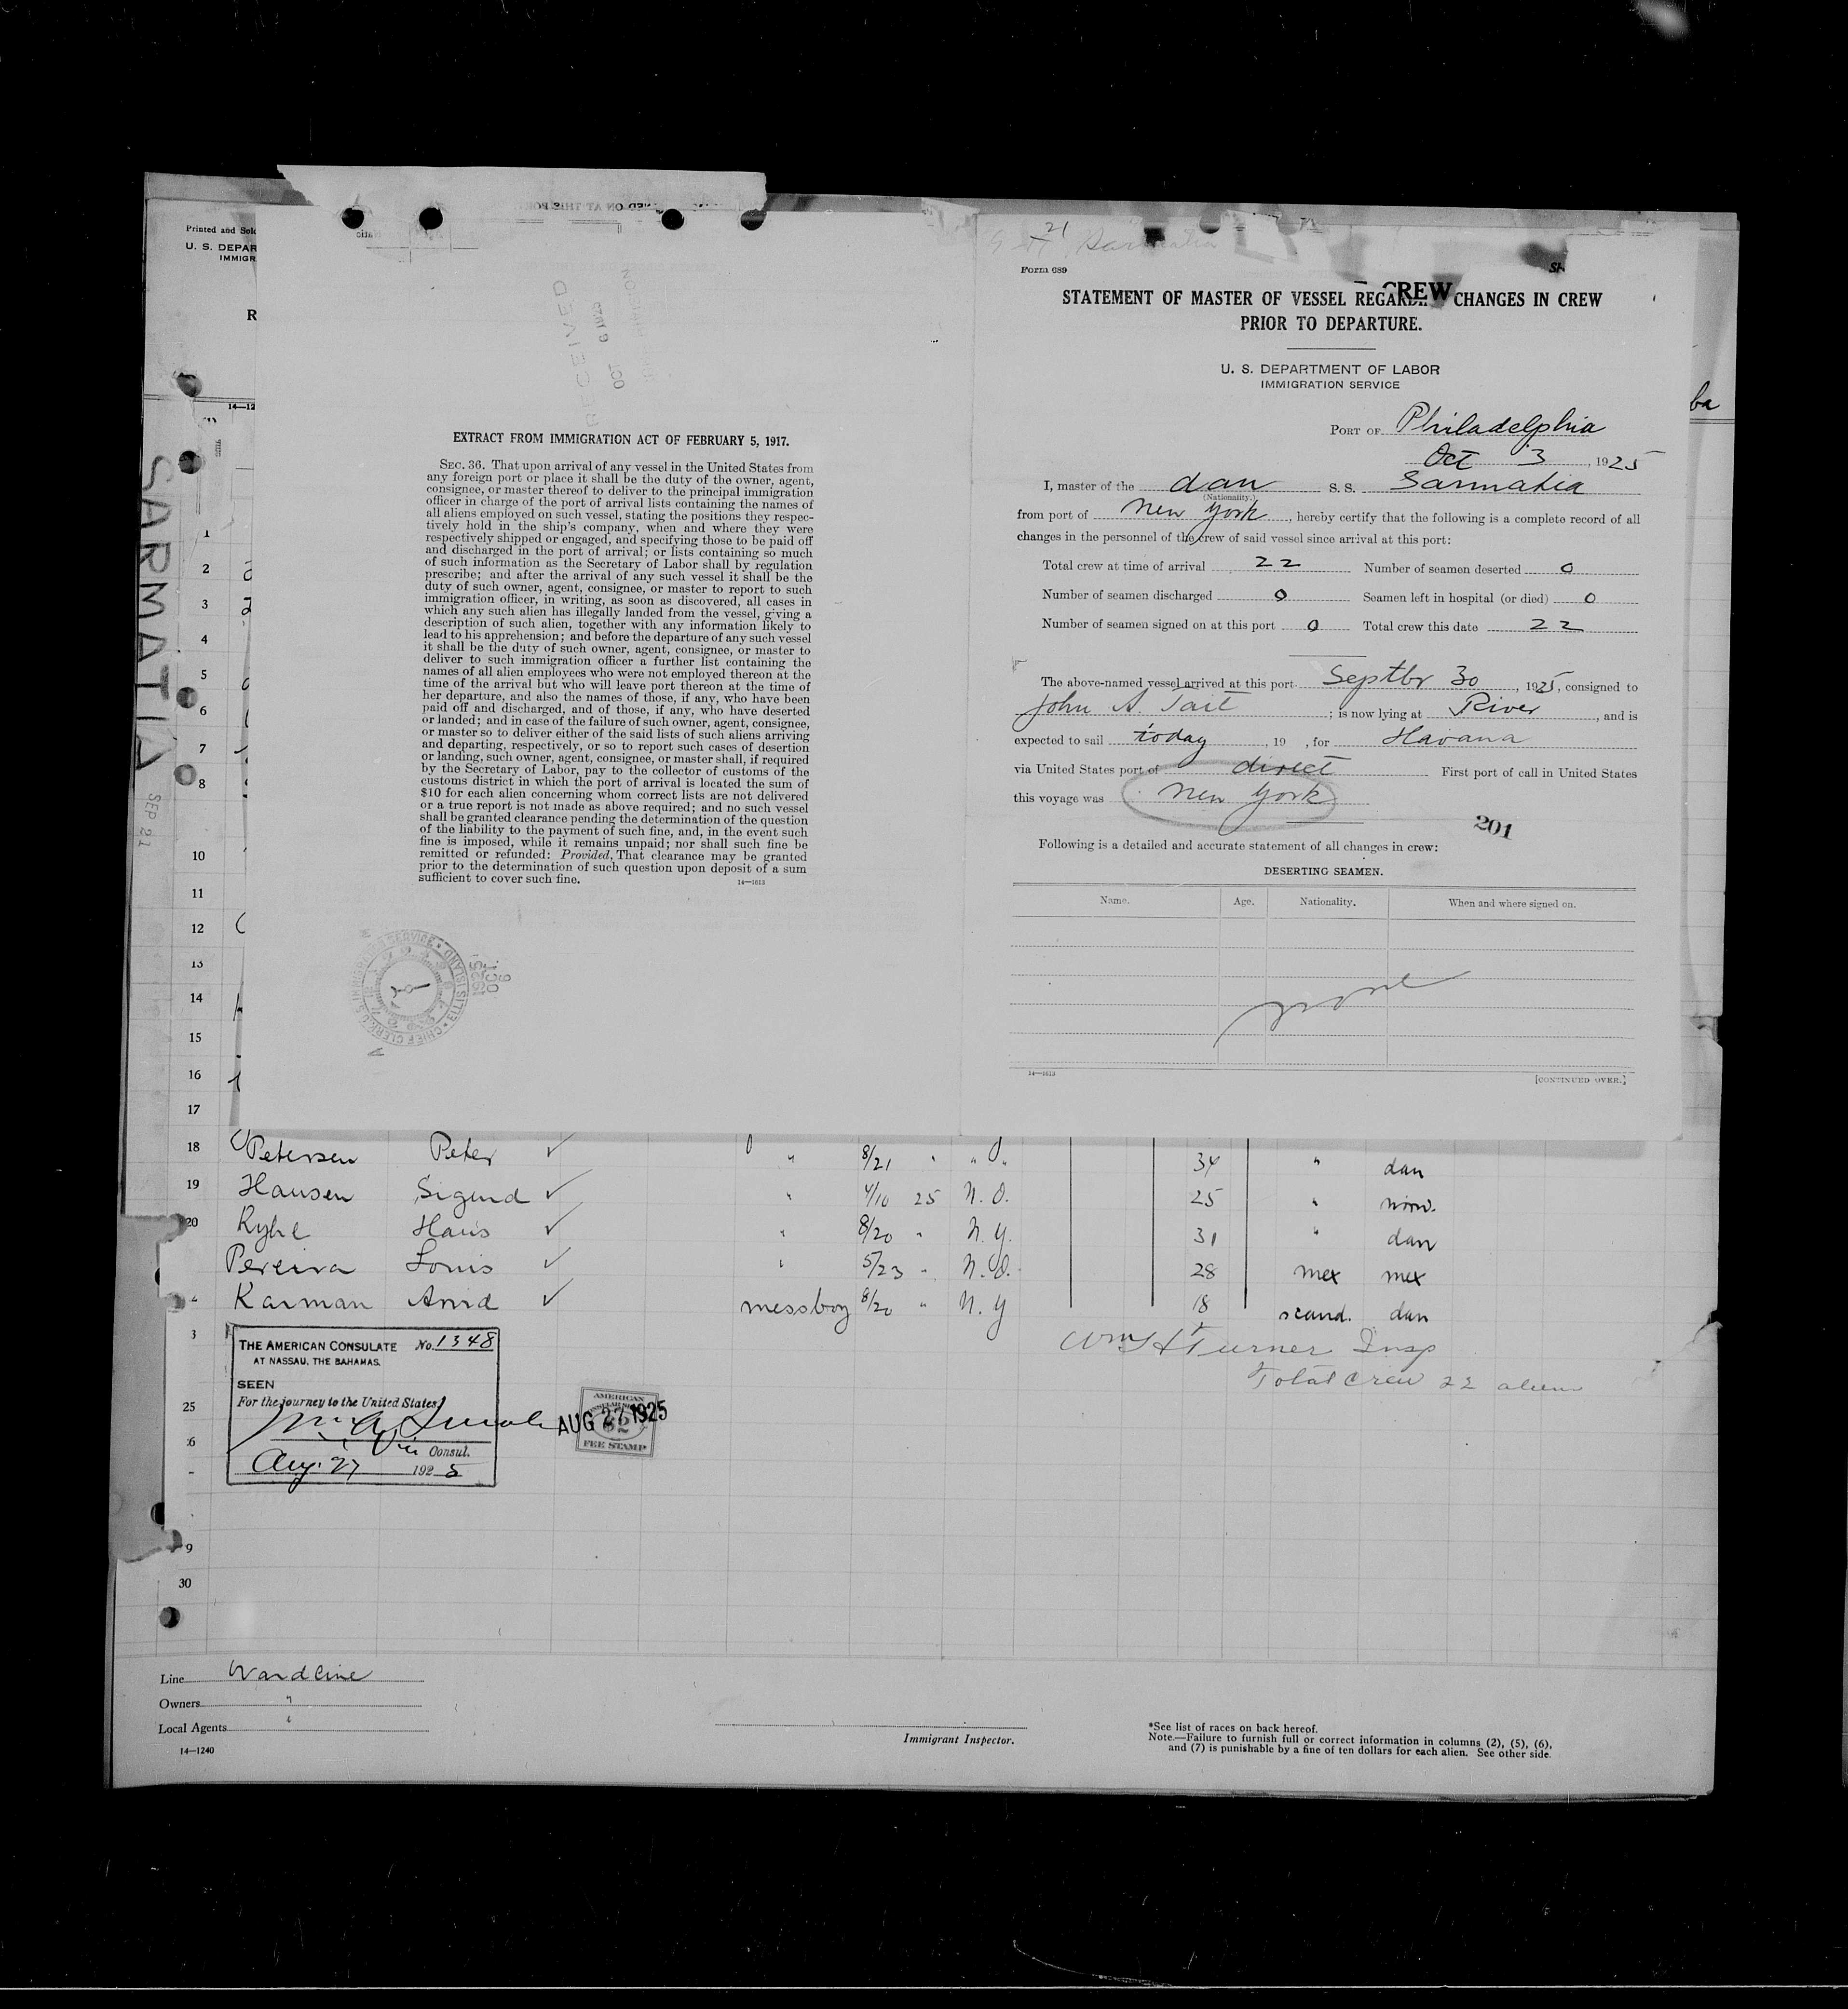 Printed and Sold
U. S. DEPAR
IMMIGR
R
14—12
SARMATIA
SEP 21
RECEIVED
OCT 6 1925
EXTRACT FROM IMMIGRATION ACT OF FEBRUARY 5, 1917.
SEC. 36. That upon arrival of any vessel in the United States from
any foreign port or place it shall be the duty of the owner, agent,
consignee, or master thereof to deliver to the principal immigration
officer in charge of the port of arrival lists containing the names of
all aliens employed on such vessel, stating the positions they respec-
tively hold in the ship's company, when and where they were
respectively shipped or engaged, and specifying those to be paid off
and discharged in the port of arrival; or lists containing so much
of such information as the Secretary of Labor shall by regulation
prescribe; and after the arrival of any such vessel it shall be the
duty of such owner, agent, consignee, or master to report to such
immigration officer, in writing, as soon as discovered, all cases in
which any such alien has illegally landed from the vessel, giving a
description of such alien, together with any information likely to
lead to his apprehension; and before the departure of any such vessel
it shall be the duty of such owner, agent, consignee, or master to
deliver to such immigration officer a further list containing the
names of all alien employees who were not employed thereon at the
time of the arrival but who will leave port thereon at the time of
her departure, and also the names of those, if any, who have been
paid off and discharged, and of those, if any, who have deserted
or landed; and in case of the failure of such owner, agent, consignee,
or master so to deliver either of the said lists of such aliens arriving
and departing, respectively, or so to report such cases of desertion
or landing, such owner, agent, consignee, or master shall, if required
by the Secretary of Labor, pay to the collector of customs of the
customs district in which the port of arrival is located the sum of
$10 for each alien concerning whom correct lists are not delivered
or a true report is not made as above required; and no such vessel
shall be granted clearance pending the determination of the question
of the liability to the payment of such fine, and, in the event such
fine is imposed, while it remains unpaid; nor shall such fine be
remitted or refunded: Provided, That clearance may be granted
prior to the determination of such question upon deposit of a sum
sufficient to cover such fine.
14—1613
CHIEF CLERK U. S. IMMIGRATION SERVICE ELLIS ISLAND
OCT 6 1925
21 Sarmatia
Form 689
CREW
STATEMENT OF MASTER OF VESSEL REGARD CHANGES IN CREW
PRIOR TO DEPARTURE.
U. S. DEPARTMENT OF LABOR
IMMIGRATION SERVICE
PORT OF Philadelphia
Oct 3, 1925
I, master of the dan S. S. Sarmatia
(Nationality.)
from port of New York, hereby certify that the following is a complete record of all
changes in the personnel of the crew of said vessel since arrival at this port:
Total crew at time of arrival 22 Number of seamen deserted 0
Number of seamen discharged 0 Seamen left in hospital (or died) 0
Number of seamen signed on at this port 0 Total crew this date 22
The above-named vessel arrived at this port Septbr 30, 1925, consigned to
John A. Tait; is now lying at River, and is
expected to sail today, 19 , for Havana
via United States port of direct First port of call in United States
this voyage was New York
201
Following is a detailed and accurate statement of all changes in crew:
DESERTING SEAMEN.
Name. Age. Nationality. When and where signed on.
none
14—1613 [CONTINUED OVER.]
ba
1
2
3
4
5
6
7
8
10
11
12
13
14
15
16
17
18 Petersen Peter ✓ " 8/21 " " " 34 " dan
19 Hansen Sigurd ✓ " 4/10 25 N. O. 25 " norw.
20 Ryhl Hans ✓ " 8/20 " N. Y. 31 " dan
Pereira Louis ✓ " 5/23 " N. O. 28 mex mex
Karman Arvid ✓ messboy 8/20 " N. Y 18 scand. dan
3
Wm H Turner Insp
Total Crew 22 aliens
THE AMERICAN CONSULATE No. 1348
AT NASSAU, THE BAHAMAS.
SEEN
For the journey to the United States
Vice Consul.
Aug. 27 1925
AMERICAN
CONSULAR SERVICE
$2
FEE STAMP
AUG 27 1925
25
26
9
30
Line Wardline
Owners "
Local Agents "
14—1240
Immigrant Inspector.
*See list of races on back hereof.
Note.—Failure to furnish full or correct information in columns (2), (5), (6),
and (7) is punishable by a fine of ten dollars for each alien. See other side.